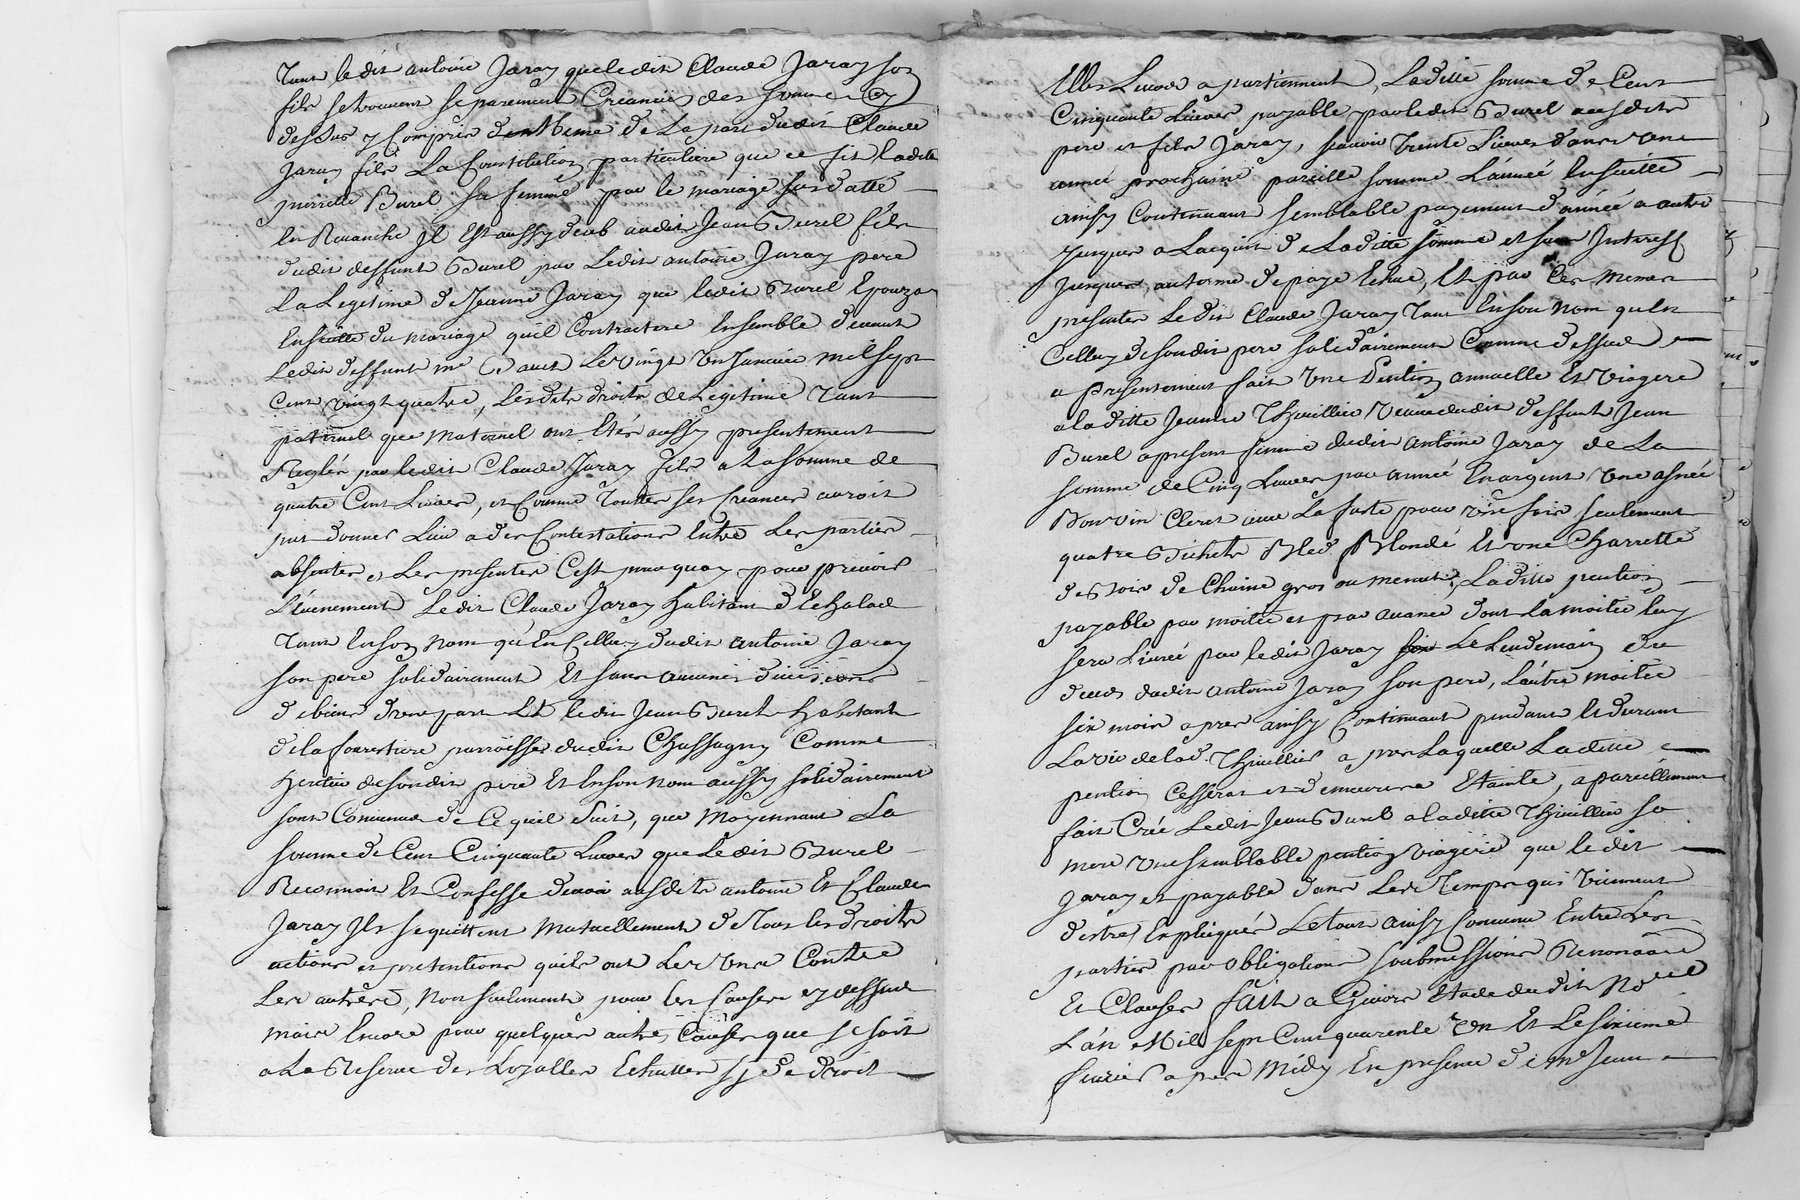 Tant ledit antoine Jaray que ledit Claude Jaray son
fils se trouvent separement Creanciers des sommes Cy
dessus y Compris de la part dudit Claude
Jaray fils La Constitution particuliere que ce fit ladite
pierrette Burel sa femme par le mariage susdatté
En Revanche Jl Est aussy deub audit Jean Burel fils
dudit deffunt Burel par Ledit antoine Jaray pere
La Legitime de Jeanne Jaray que ledit Burel Epouza
Ensuitte du mariage quil Contracterent Ensemble devant
Ledit deffunt me Davet Le vingt un Janvier mil sept
Cent vingt quatre, Lesdits droits de Legitime Tant
paternel que maternel ont Etés aussy presentement
Reglés par ledit Claude Jaray fils a La somme de
quatre Cent Livres, et Comme Toutes ses Creances auroit
put donner Lieu a des Contestations Entre Les parties
absentes, Les presentes Cest pourquoy pour prevoir
L'évenement Ledit Claude Jaray habitant d'Echalad
Tant En son nom qu'En Celluy dudit antoine Jaray
son pere solidairement Et sans aucunes divisions
de biens d'une part Et ledit Jean Burel habitant
de la fourestiere parroisse dudit Chassagny Comme
heritier de sondit pere Et En son nom aussy solidairement
sont Convenus de Ce quil suit, que Moyennant La
somme de Cent Cinquante Livres que Ledit Burel
Reconnoit Et Confesse devoir ausdits antoine Et Claude
Jaray Jls se quittent Mutuellement de Tous les droits
actions et pretentions quils ont Les Uns Contre
Les autres, Non seulement pour les Causes cy dessus
mais Encore pour quelques autres Causes que se soit
a La Reserve des Loyalles Echuttes sy de droit
Elles Leurs apartiennent, Laditte somme de Cent
Cinquante Livres payable par ledit Burel ausdits
pere et fils Jaray, scavoir Trente Livres dans Une
année prochaine pareille somme L'année Ensuitte
ainsy Continuant semblable payement d'année a autre
Jusques a Lacquit de Laditte somme et sans Interest
Jusques, au terme de paye Echue, Et par Ces Memes
presentes Ledit Claude Jaray Tant En son Nom qu'En
Celluy de sondit pere solidairement Comme dessus
a presentement fait Une Pention annuelle Et viagere
a laditte Jeanne Thivillier Veuve dudit deffunt Jean
Burel a present femme dudit antoine Jaray de La
somme de Cinq Livres par année En argent Une asnée
Bon vin Cleret avec La futte pour Une fois seulement
quatre Bichets Bled Blondé Et Une Charrette
de Bois de Chaine gros ou menut, Laditte pention
payable par moitié et par avance dont la moitié luy
sera Livrée par ledit Jaray Le Lendemain du
deces dudit antoine Jaray son pere, L'autre moitié
six mois apres ainsy Continuant pendant le durant
La vie de lad. Thivillier apres Laquelle Laditte
pention Cessera et demeurera Etainte, a pareillement
fait Crée Ledit Jean Burel a laditte Thivillier sa
mere Une semblable pention viagere que le dit
Jaray et payable dans Les Temps qui Viennent
d'estres Expliqués Le tout ainsy Convenu Entre Les
parties par obligations soubmissions Renonçiations
Et Clauses fait a Givors Etude dudit No.re
L'an Mil sept Cent quarente Un Et Le sixieme
fevrier apres Midy En presence de me Jean